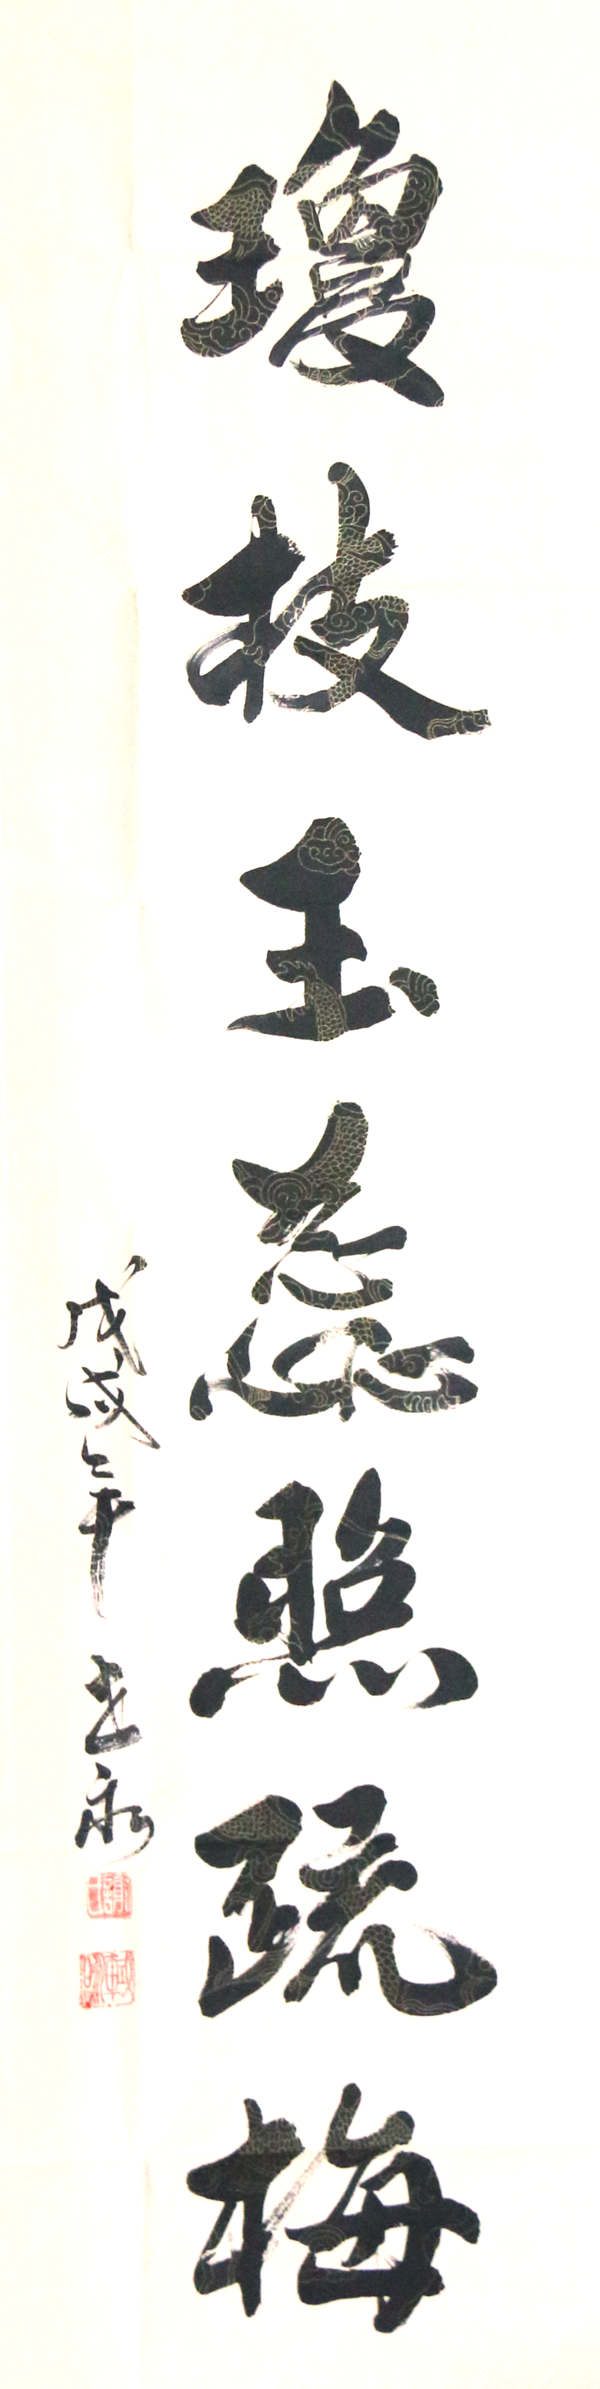 瓊枝玉蕊照疏梅
戊戌年 志永